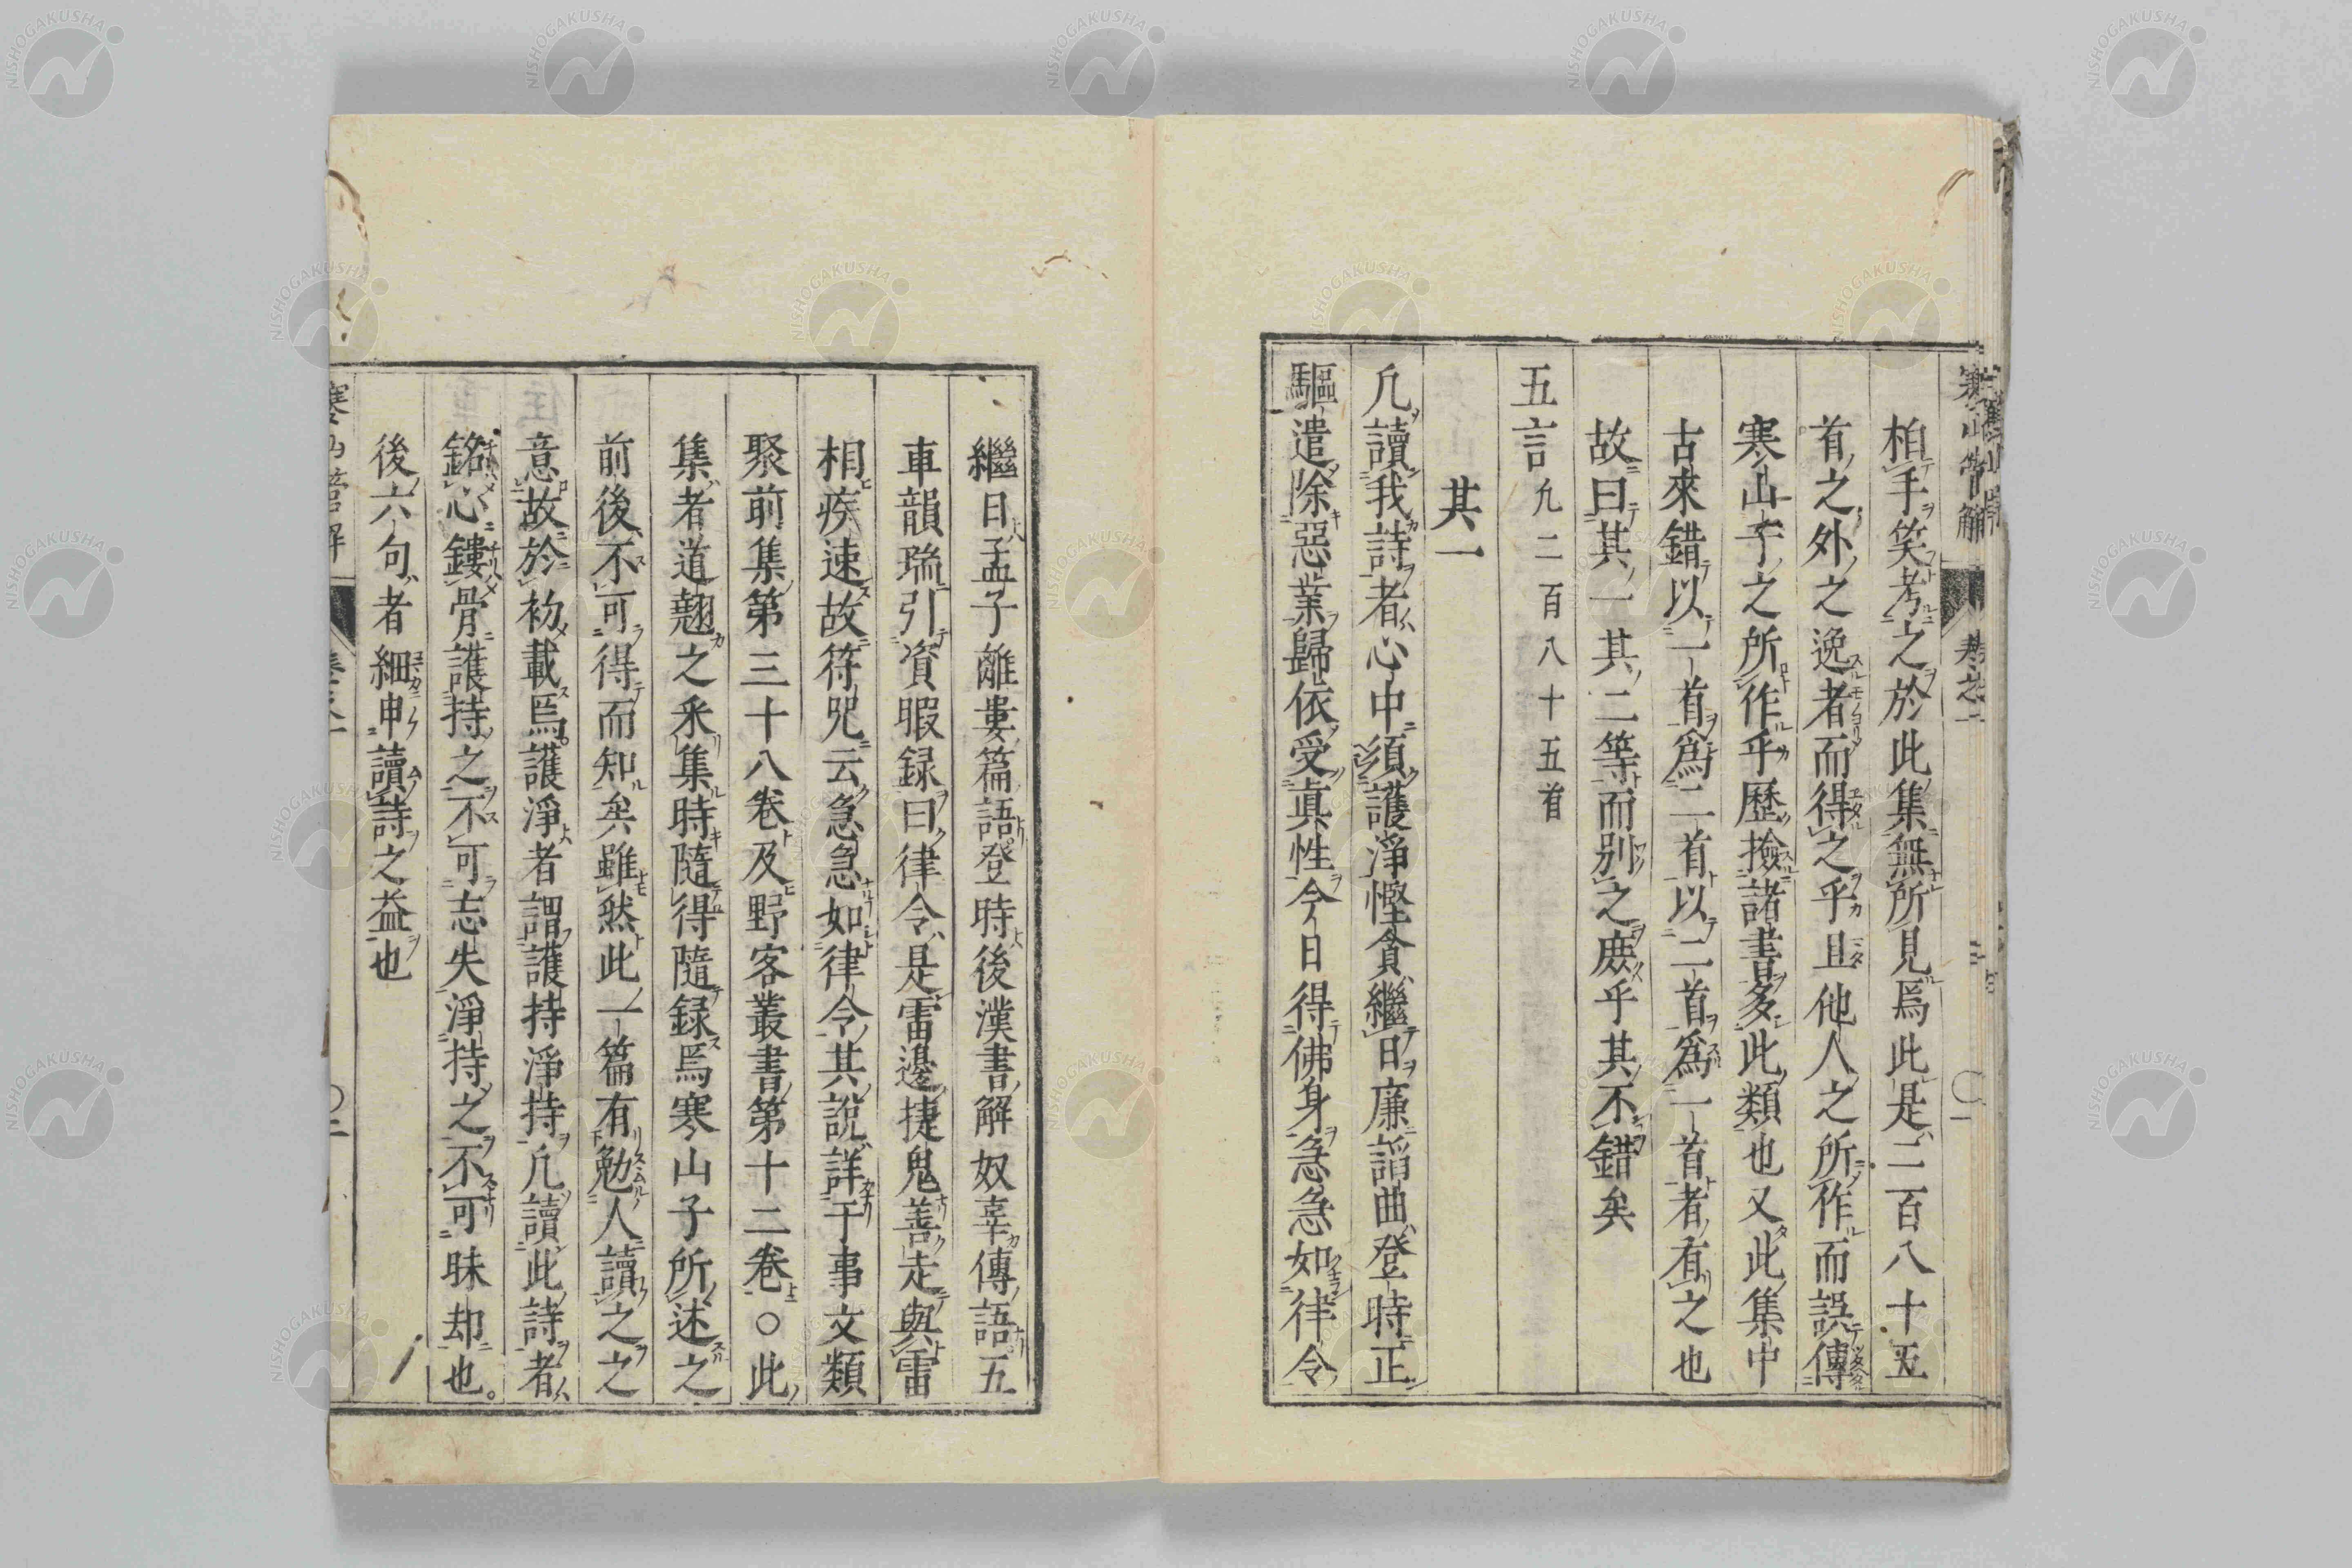 寒山詩管解 卷之一
柏手笑考之於此集無所見焉此是二百八十五
首之外之逸者而得之乎且他人之所作而誤傳
寒山子之所作乎歷撿諸書多此類也又此集中
古來錯以一首爲二首以二首爲一首者有之也
故曰其一其二等而別之庶乎其不錯矣
五言九二百八十五首
其一
凢讀我詩者心中須護淨慳貪繼日廉諂曲登時正
驅遣除惡業歸依受眞性今日得佛身急急如律令
繼日孟子離婁篇語登時後漢書解奴辜傳語五
車韻瑞引資暇録曰律令是雷邊捷鬼善走與雷
相疾速故符咒云急急如律令其說詳于事文類
聚前集第三十八卷及野客叢書第十二卷○此
集者道翹之釆集時隨得隨録焉寒山子所述之
前後不可得而知矣雖然此一篇有勉人讀之之
意故於初載焉護淨者謂護持淨持凢讀此詩者
銘心鏤骨護持之不可志失淨持之不可昧却也
後六句者細申讀詩之益也
NISHOGAKUSHA